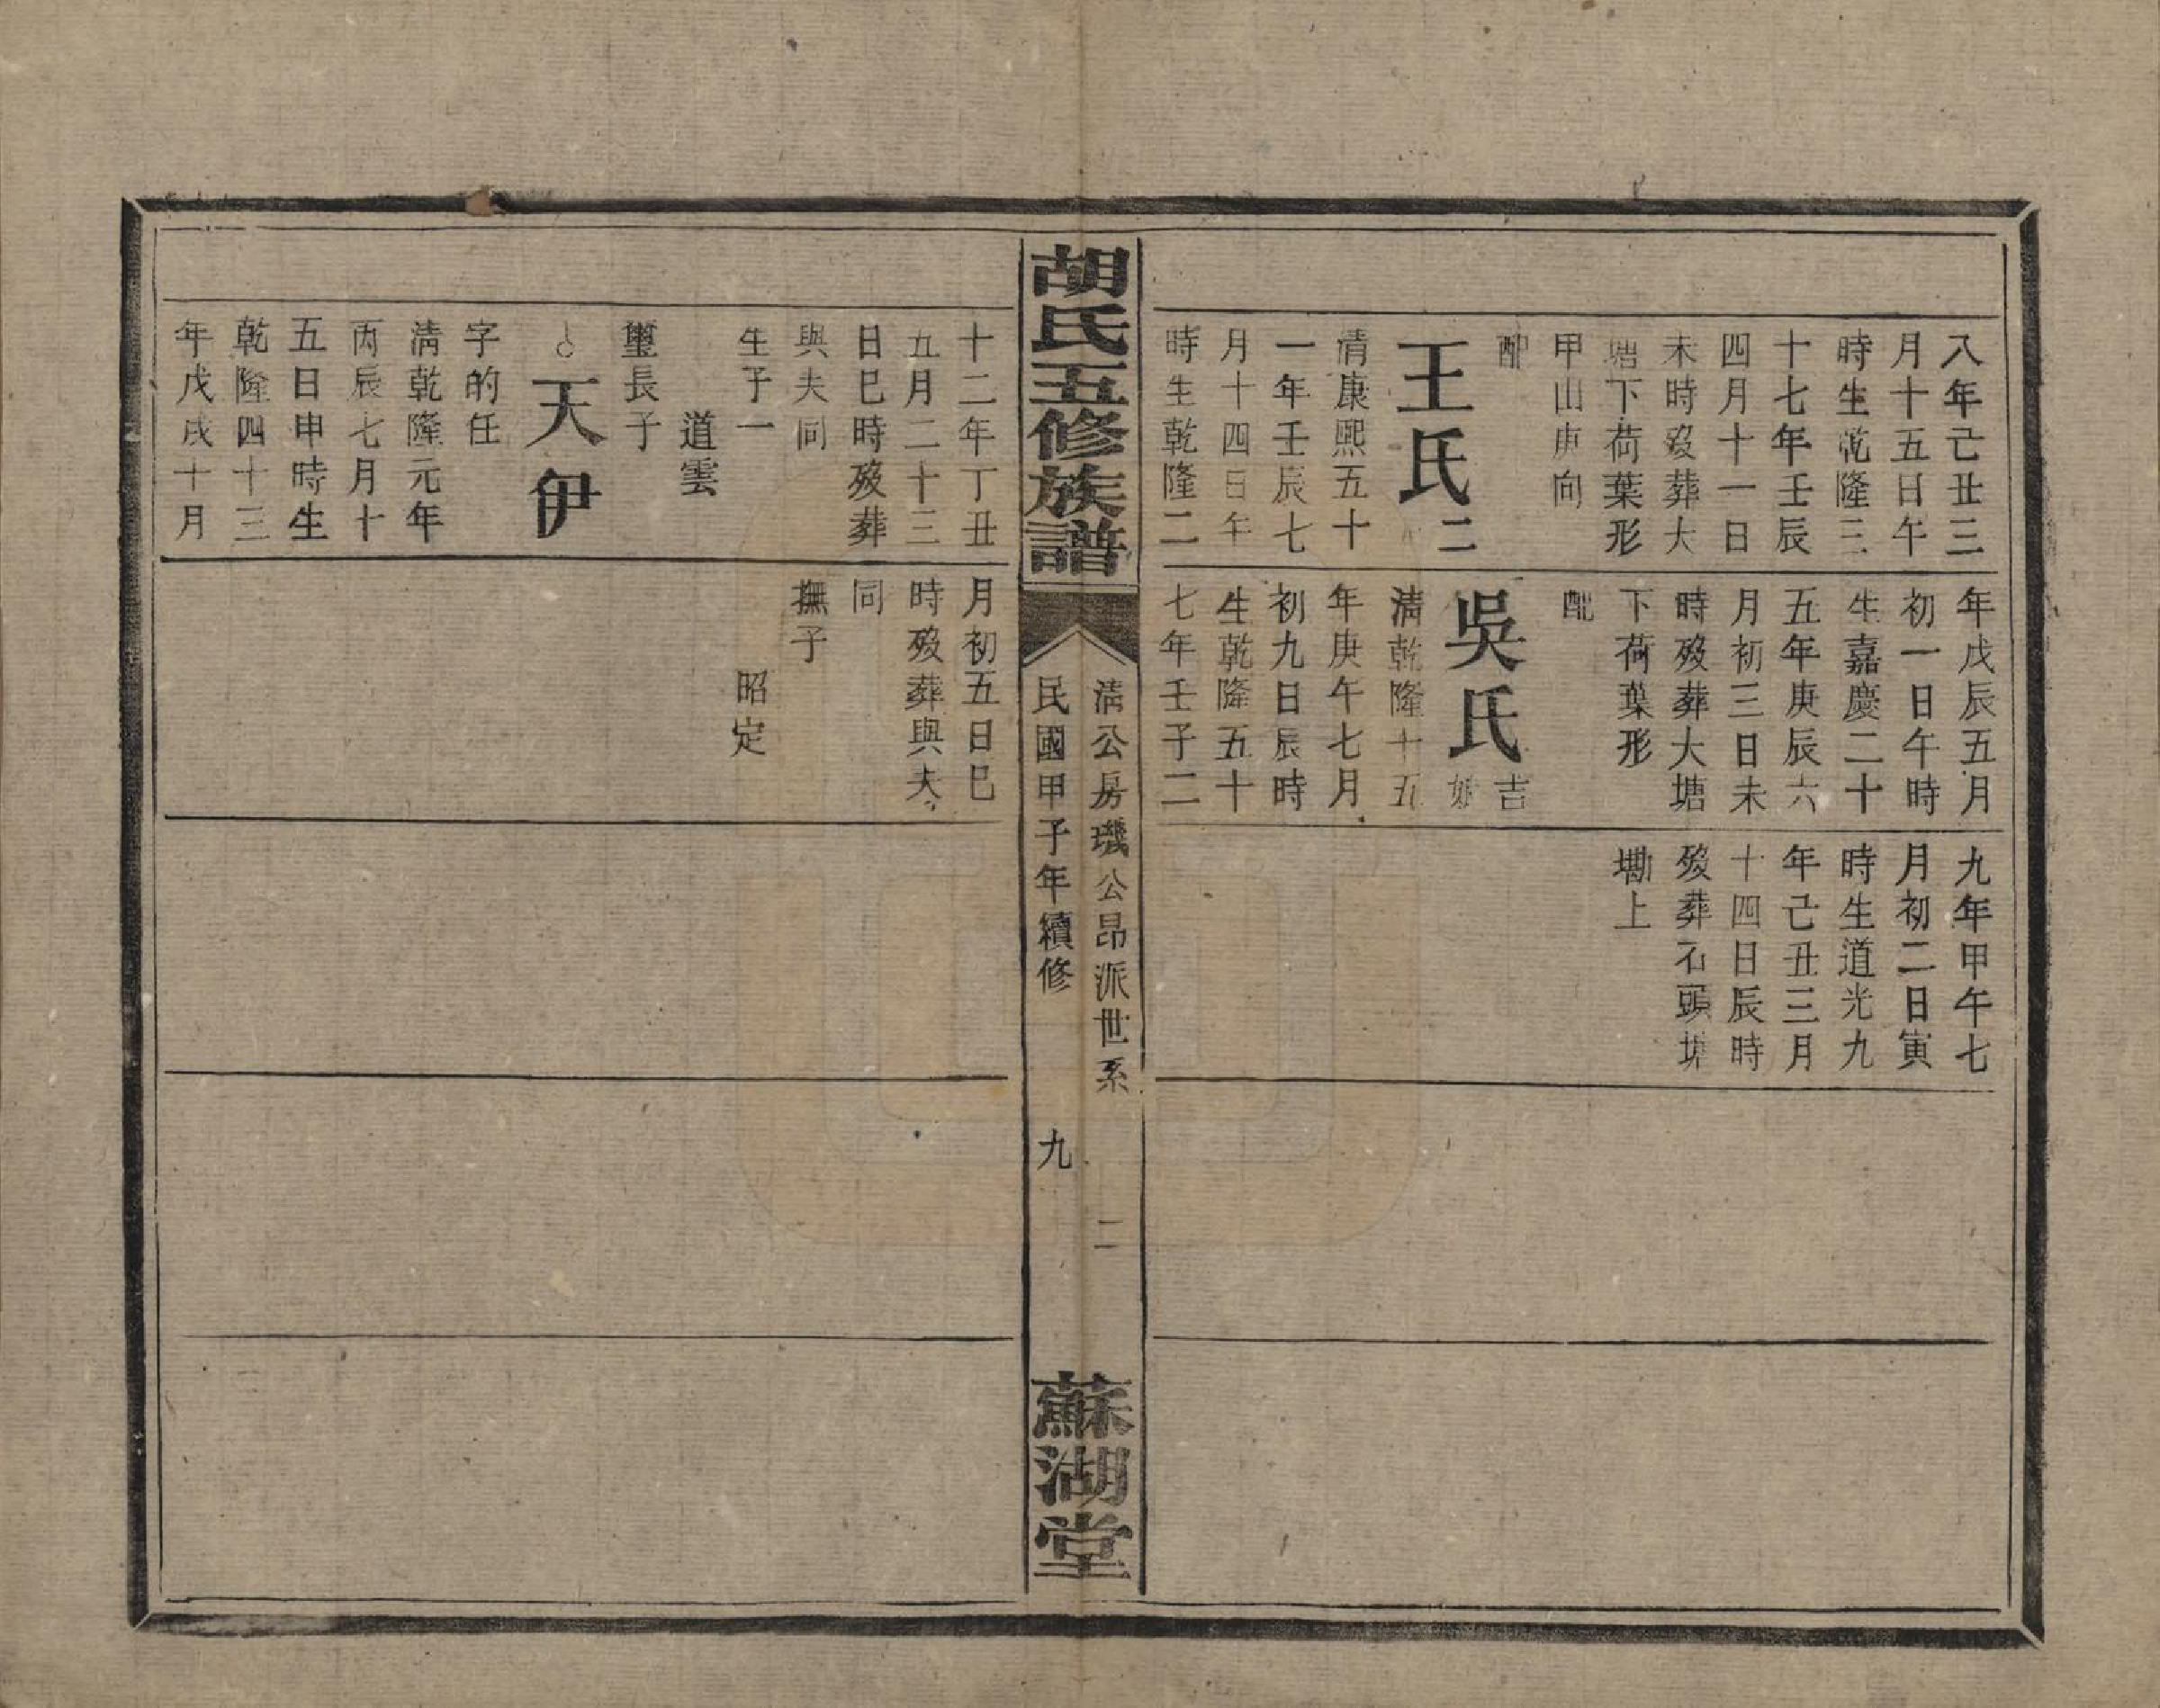 八年己丑三
月十五日午
時生乾隆三
十七年壬辰
四月十一日
未時歿葬大
塘下荷葉形
甲山庚向
配
王氏二
清康熙五十
一年壬辰七
月十四日午
時生乾隆二
年戊辰五月
初一日午時
生嘉慶二十
五年庚辰六
月初三日未
時歿葬大塘
下荷葉形
配
吳氏吉
清乾隆十五
年庚午七月
初九日辰時
生乾隆五十
七年壬子二
九年甲午七
月初二日寅
時生道光九
年己丑三月
十四日辰時
歿葬石頭塘
墈上
胡氏五修族譜
清公房璣公昂派世系 二
民國甲子年續修 九
蘇湖堂
十二年丁丑
五月二十三
日巳時歿葬
與夫同
生子一
道雲
璽長子
天伊
字的任
清乾隆元年
丙辰七月十
五日申時生
乾隆四十三
年戊戌十月
月初五日巳
時歿葬與夫
同
撫子
昭定